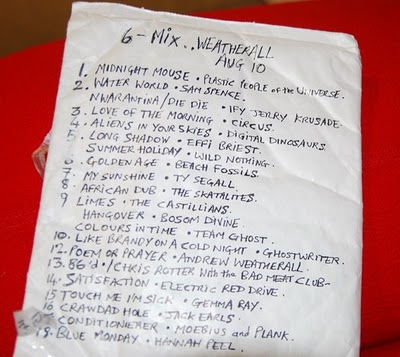 6 - MIX.. WEATHERALL
AUG 10
1. MIDNIGHT MOUSE • PLASTIC PEOPLE of the UNIVERSE.
2. WATER WORLD • SAM SPENCE.
NWARANTINA/DIE DIE • IFY JERRY KRUSADE.
3. LOVE OF THE MORNING • CIRCUS.
4. ALIENS IN YOUR SKIES • DIGITAL DINOSAURS
5. LONG SHADOW • EFFI BRIEST.
SUMMER HOLIDAY • WILD NOTHING.
6. GOLDEN AGE • BEACH FOSSILS.
7. MY SUNSHINE • TY SEGALL.
8. AFRICAN DUB • THE SKATALITES.
9. LIMES • THE CASTILLIANS.
HANGOVER • BOSOM DIVINE.
COLOURS IN TIME • TEAM GHOST.
10. LIKE BRANDY ON A COLD NIGHT • GHOSTWRITER.
12. POEM OR PRAYER • ANDREW WEATHERALL.
13. 86'd • /CHRIS ROTTER With the BAD MEAT CLUB-
14. SATISFACTION • ELECTRIC RED DRIVE.
15 TOUCH ME I'M SICK • GEMMA RAY.
16 CRAWDAD HOLE • JACK EARLS.
CONDITIONERER • MOEBIUS and PLANK.
19. BLUE MONDAY • HANNAH PEEL.